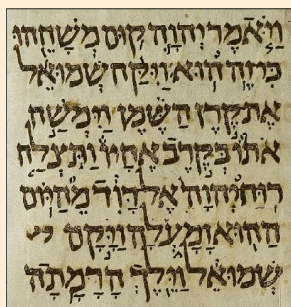 וַיֹּאמֶר יְהוָה קוּם מְשָׁחֵהוּ
כִּי־זֶה הוּא וַיִּקַּח שְׁמוּאֵל
אֶת־קֶרֶן הַשֶּׁמֶן וַיִּמְשַׁח
אֹתוֹ בְּקֶרֶב אֶחָיו וַתִּצְלַח
רוּחַ־יְהוָה אֶל־דָּוִד מֵהַיּוֹם
הַהוּא וָמָעְלָה וַיָּקָם
שְׁמוּאֵל וַיֵּלֶךְ הָרָמָתָה